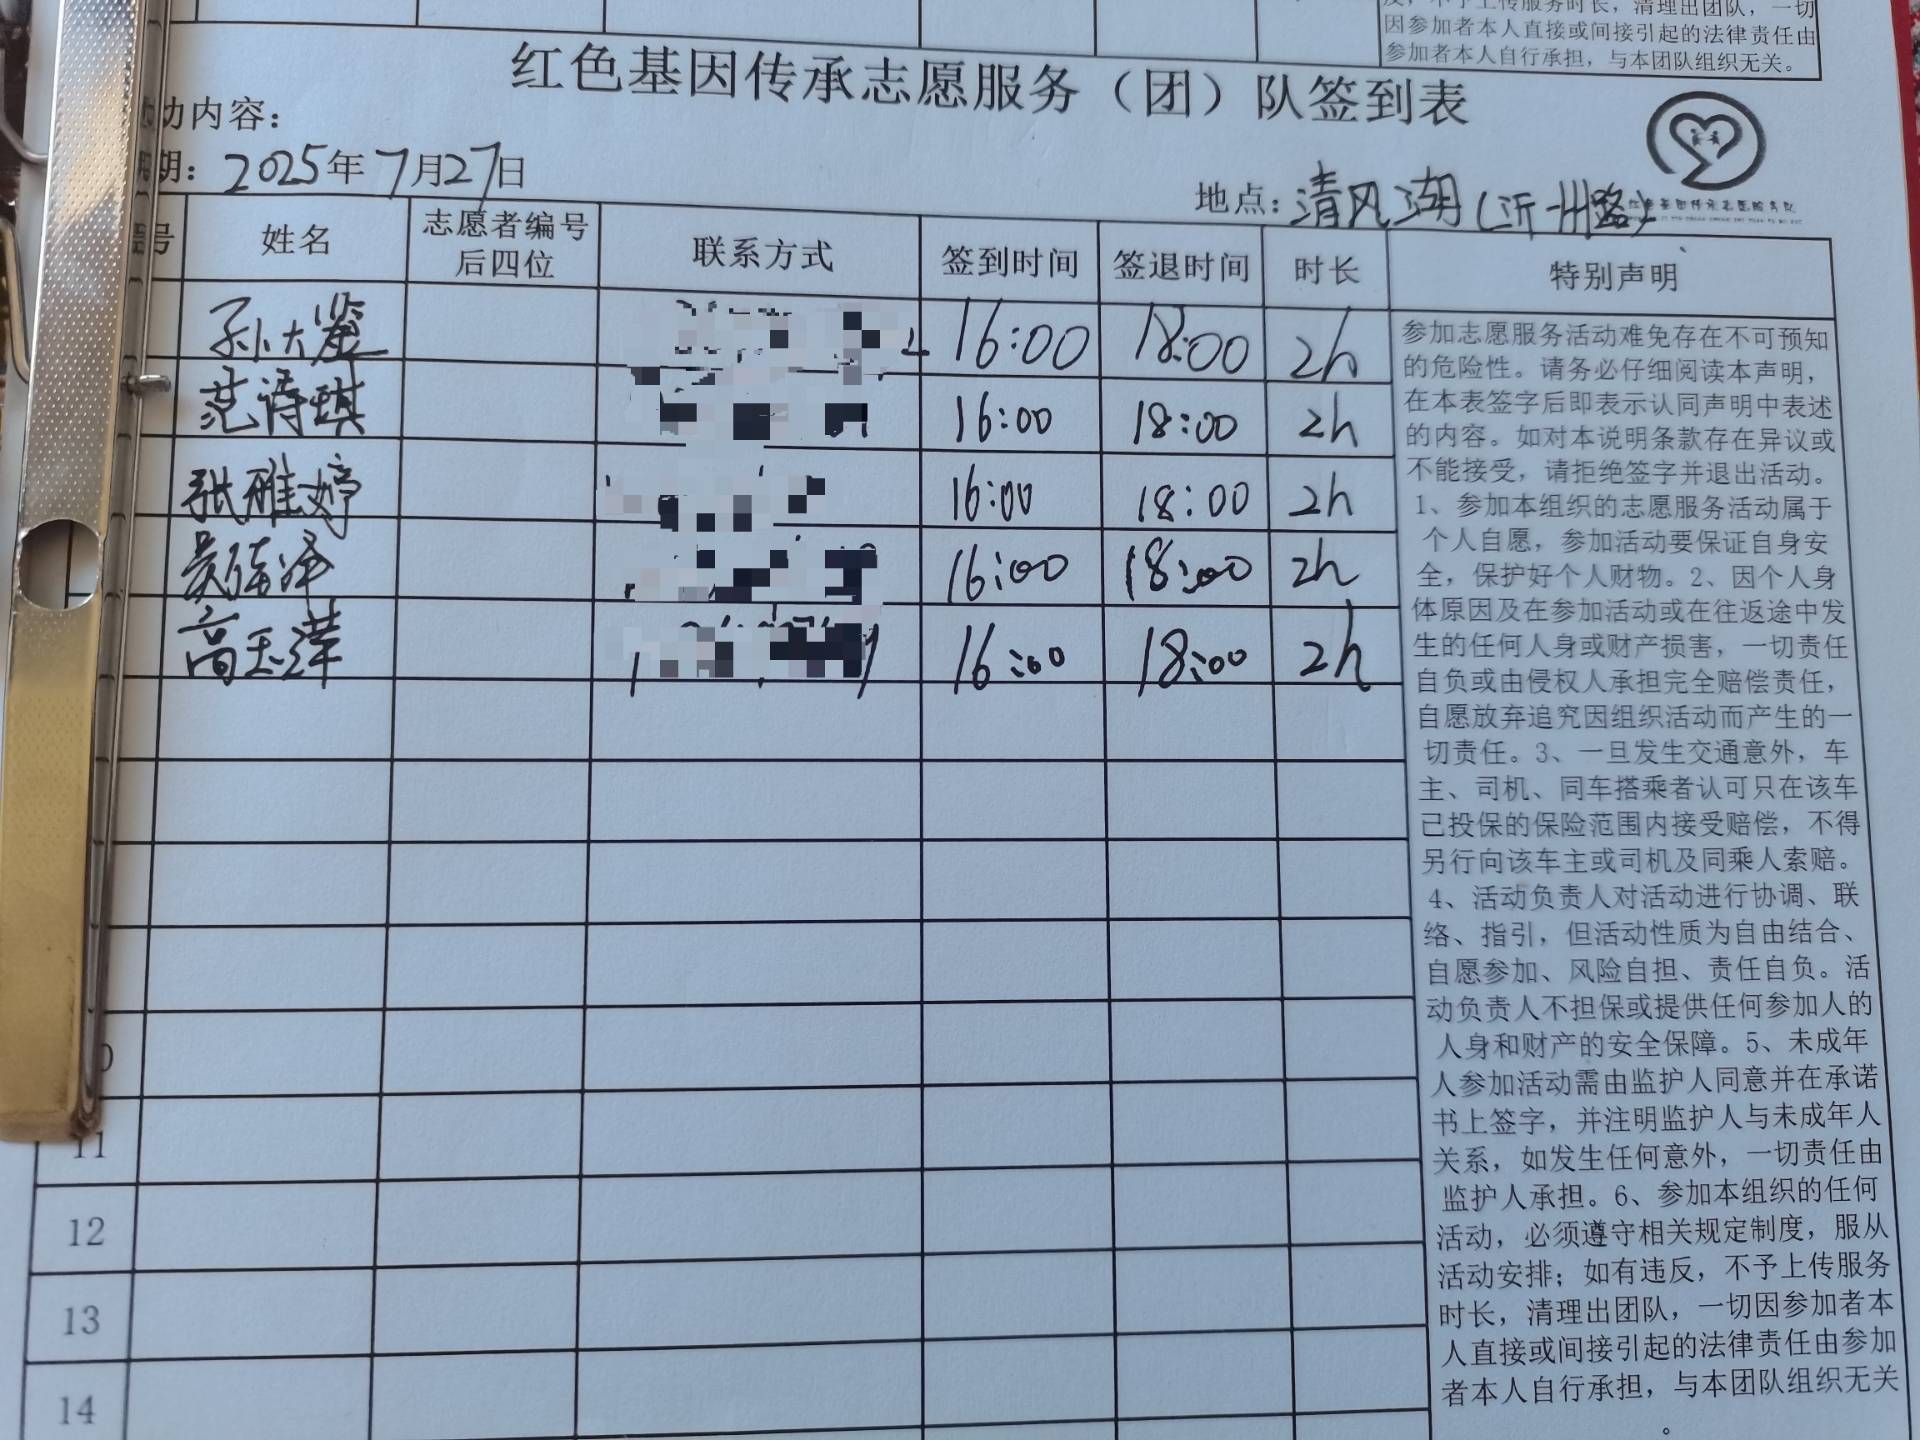 度，不予上传服务时长，清理出团队，一切
因参加者本人直接或间接引起的法律责任由
参加者本人自行承担，与本团队组织无关。
红色基因传承志愿服务（团）队签到表
动内容：
期：2025年7月27日
地点：清风湖（沂州路）
号 姓名 志愿者编号后四位 联系方式 签到时间 签退时间 时长 特别声明
孙大鉴 16:00 18:00 2h
范诗琪 16:00 18:00 2h
张雅婷 16:00 18:00 2h
16:00 18:00 2h
高玉洋 16:00 18:00 2h
11
12
13
14
参加志愿服务活动难免存在不可预知
的危险性。请务必仔细阅读本声明，
在本表签字后即表示认同声明中表述
的内容。如对本说明条款存在异议或
不能接受，请拒绝签字并退出活动。
1、参加本组织的志愿服务活动属于
个人自愿，参加活动要保证自身安
全，保护好个人财物。2、因个人身
体原因及在参加活动或在往返途中发
生的任何人身或财产损害，一切责任
自负或由侵权人承担完全赔偿责任，
自愿放弃追究因组织活动而产生的一
切责任。3、一旦发生交通意外，车
主、司机、同车搭乘者认可只在该车
已投保的保险范围内接受赔偿，不得
另行向该车主或司机及同乘人索赔。
4、活动负责人对活动进行协调、联
络、指引，但活动性质为自由结合、
自愿参加、风险自担、责任自负。活
动负责人不担保或提供任何参加人的
人身和财产的安全保障。5、未成年
人参加活动需由监护人同意并在承诺
书上签字，并注明监护人与未成年人
关系，如发生任何意外，一切责任由
监护人承担。6、参加本组织的任何
活动，必须遵守相关规定制度，服从
活动安排；如有违反，不予上传服务
时长，清理出团队，一切因参加者本
人直接或间接引起的法律责任由参加
者本人自行承担，与本团队组织无关
。